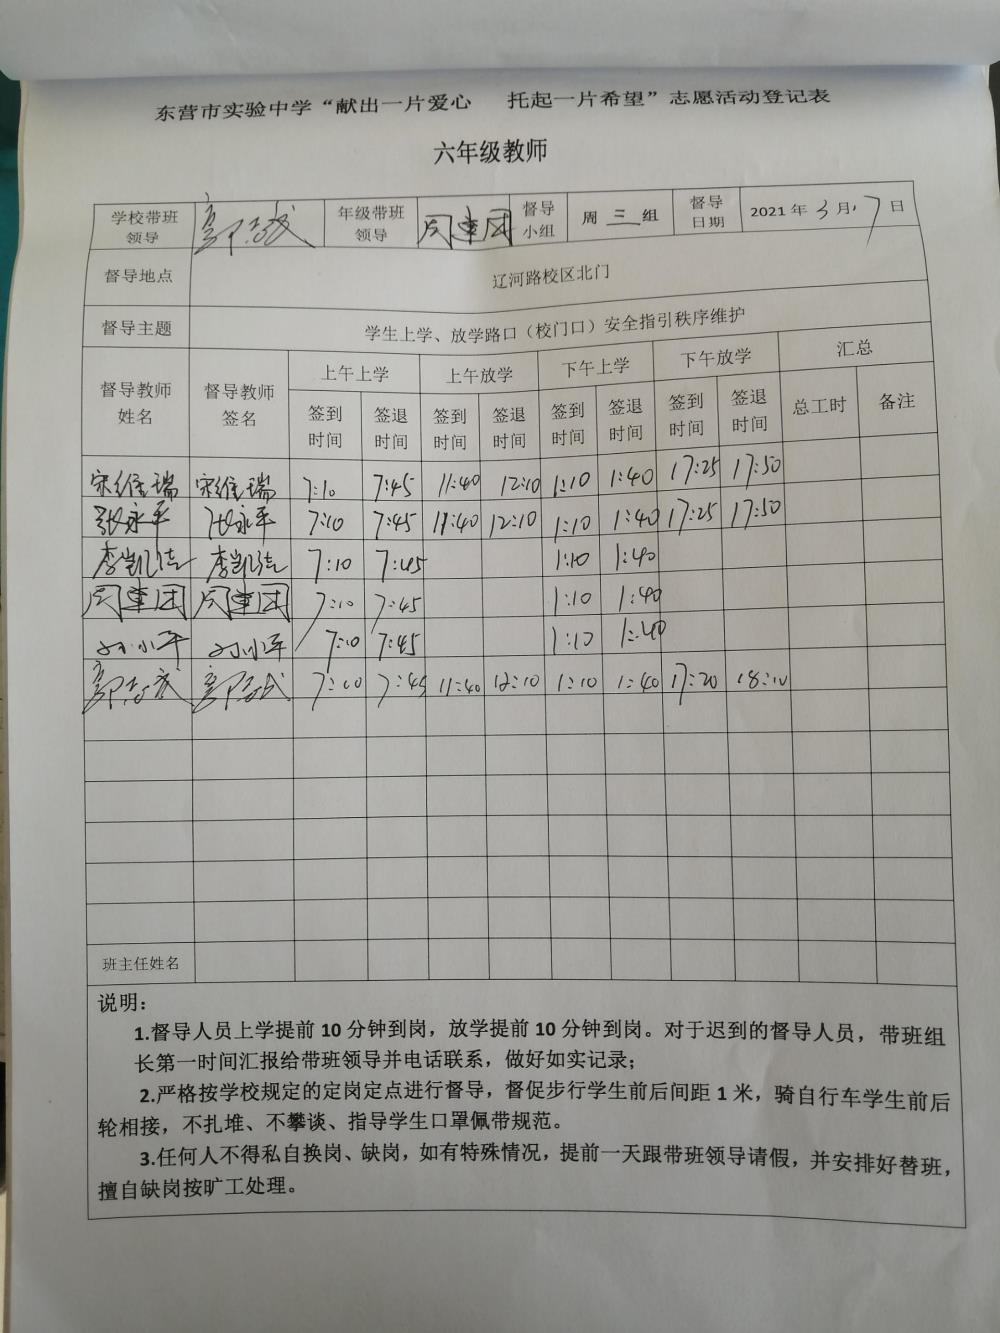 东营市实验中学“献出一片爱心 托起一片希望”志愿活动登记表
六年级教师
学校带班领导 年级带班领导 周建团 督导小组 周 三 组 督导日期 2021 年 3 月 17 日
督导地点 辽河路校区北门
督导主题 学生上学、放学路口（校门口）安全指引秩序维护
督导教师姓名 督导教师签名 上午上学 上午放学 下午上学 下午放学 汇总
签到时间 签退时间 签到时间 签退时间 签到时间 签退时间 签到时间 签退时间 总工时 备注
宋维瑞 宋维瑞 7:10 7:45 11:40 12:10 1:10 1:40 17:25 17:50
张永平 张永平 7:10 7:45 11:40 12:10 1:10 1:40 17:25 17:50
李凯 李凯 7:10 7:45 1:10 1:40
周建团 周建团 7:10 7:45 1:10 1:40
孙小军 孙小军 7:10 7:45 1:10 1:40
7:10 7:45 11:40 12:10 1:10 1:40 17:20 18:10
班主任姓名
说明：
1.督导人员上学提前 10 分钟到岗，放学提前 10 分钟到岗。对于迟到的督导人员，带班组
长第一时间汇报给带班领导并电话联系，做好如实记录；
2.严格按学校规定的定岗定点进行督导，督促步行学生前后间距 1 米，骑自行车学生前后
轮相接，不扎堆、不攀谈、指导学生口罩佩带规范。
3.任何人不得私自换岗、缺岗，如有特殊情况，提前一天跟带班领导请假，并安排好替班，
擅自缺岗按旷工处理。